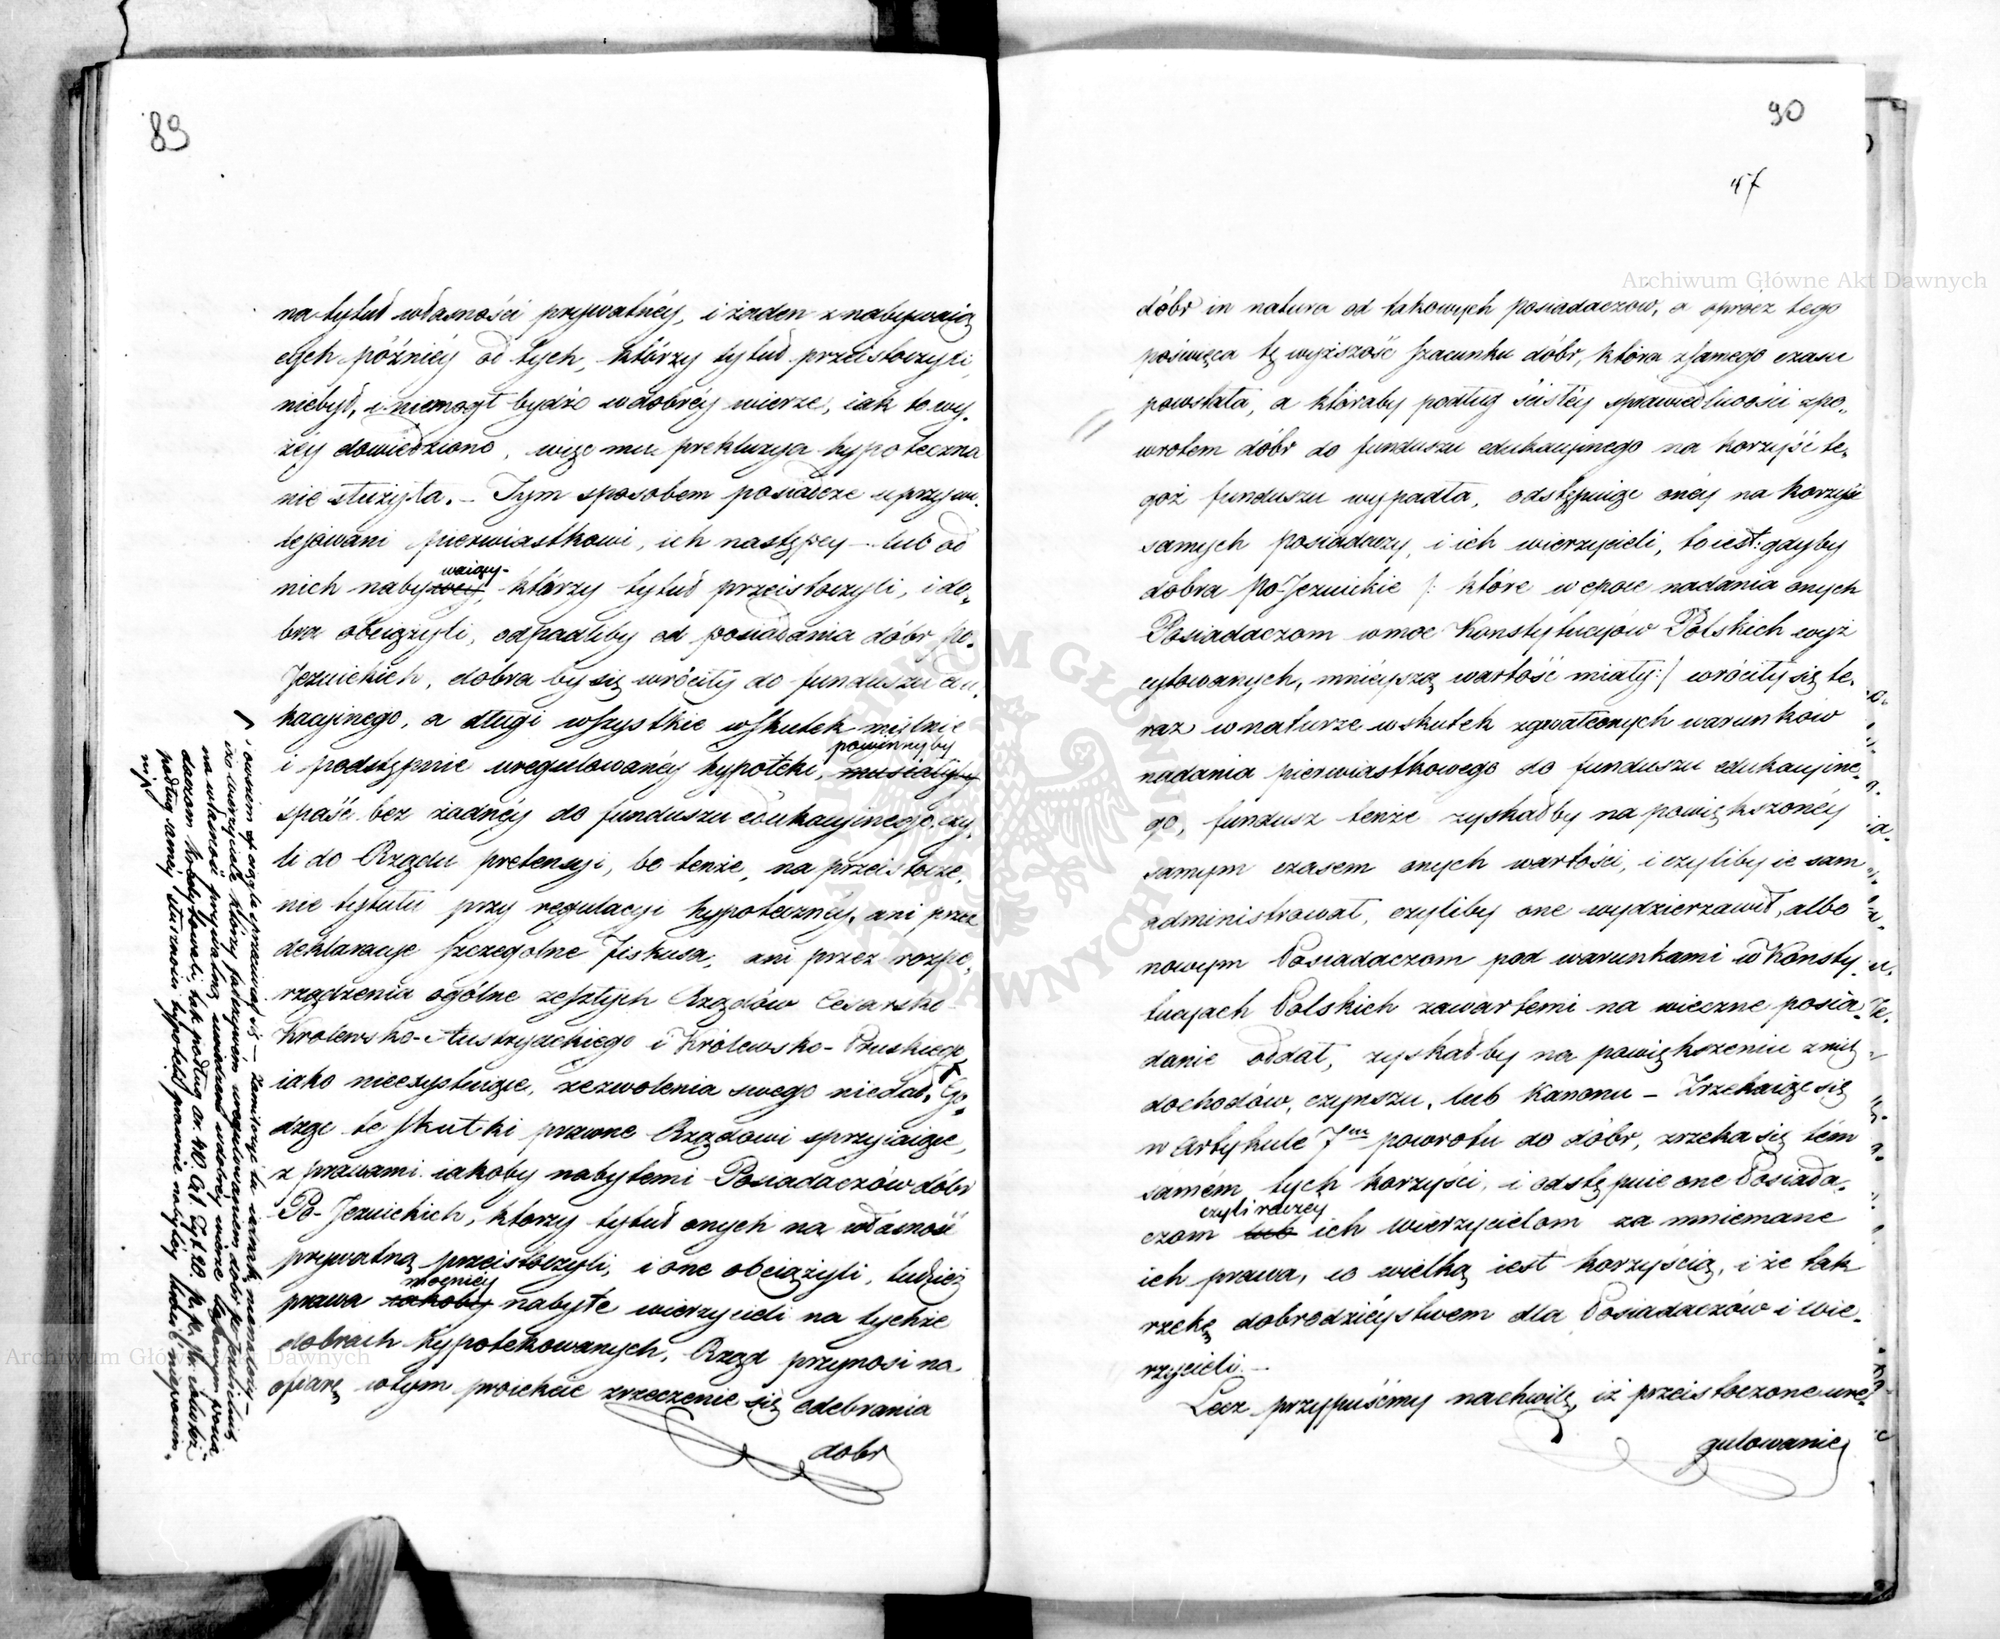 89
na tytuł własności prywatnéy, i żaden z nabywaią
cych późniéy od tych, którzy tytuł przeistoczyli,
niebył, i niemogł bydźo w dobréy wierze, iak to wy„
żéy dowiedziono, więc mu prekluzya hypoteczna
nie służyła. – Tym sposobem posiadacze uprzywi„
lejowani pierwiastkowi, ich następcy – lub od
waiący
nich nabywcy, którzy tytuł przeistoczyli, i do„
bra obciążyli, odpadliby od posiadania dóbr po„
Jezuickich, dobra by się wróciły do funduszu edu„
kacyinego, a długi wszystkie wskutek mylnie
powinny by
i podstępnie uregulowanéy hypoteki, musiały by
spaść bez żadnéy do funduszu edukacyinego czy„
li do Rządu pretensyi, bo tenże, na przeistocze„
nie tytułu przy regulacyi hypotecznéy, ani przez
deklaracye szczególne Fiskusa, ani przez rozpo„
rządzenia ogólne zeszłych Rządów Cesarsko
Królewsko-Austryackiego i Królewsko-Pruskiego,
iako nieexystuiące, zezwolenia swego niedał. Go„
dząc te skutki prawne Rządowi sprzyiaiące,
z prawami iakoby nabytemi Posiadaczów dóbr
Po-Jezuickich, którzy tytuł onych na własność
prywatną przeistoczyli, i one obciążyli, tudzież
mocniéy
prawa iakoby nabyte wierzycieli na tychże
dobrach hypotekowanych, Rząd przynosi na
ofiarę w tym proiekcie zrzeczenie się odebrania
dobr
i owszem
na własność prywatną
90
47
dóbr in natura od takowych posiadaczow, a oprócz tego
poświęca tę wyższość szacunku dóbr, która z samego czasu
powstała, a któraby podług ścisłéy sprawiedliwości z po„
wrotem dóbr do funduszu edukacyinego na korzyść te„
goż funduszu wypadła, odstępuiąc onéy na korzyść
samych posiadaczy, i ich wierzycieli, to iest: gdyby
dobra Po-Jezuickie /: które w epoce nadania onych
Posiadaczom w moc Konstytucyów Polskich wyż
cytowanych, mnieyszą wartość miały:/ wróciły się te„
raz w naturze w skutek zgwałconych warunków
nadania pierwiastkowego do funduszu edukacyine„
go, fundusz tenże zyskałby na powiększonéy
samym czasem onych wartości, i czyliby ie sam
administrował, czyliby one wydzierzawił, albo
nowym Posiadaczom pod warunkami w Konsty„
tucyach Polskich zawartemi na wieczne posia„
danie oddał, zyskałby na powiększeniu z nich
dochodów, czynszu, lub Kanonu – Zrzekaiąc się
w Artykule 7m powrotu do dóbr, zrzeka się tém
samém tych korzyści, i odstępuie one Posiada„
czyli raczéy
czom lub ich wierzycielom za mniemane
ich prawa, co wielką iest korzyścią, i że tak
rzekę dobrodzieystwem dla Posiadaczów i wie„
rzycieli. –
Lecz przypuśćmy na chwilę, iż przeistoczone ure„
gulowanie
Archiwum Główne Akt Dawnych
Archiwum Główne Akt Dawnych
ARCHIWUM GŁÓWNE AKT DAWNYCH